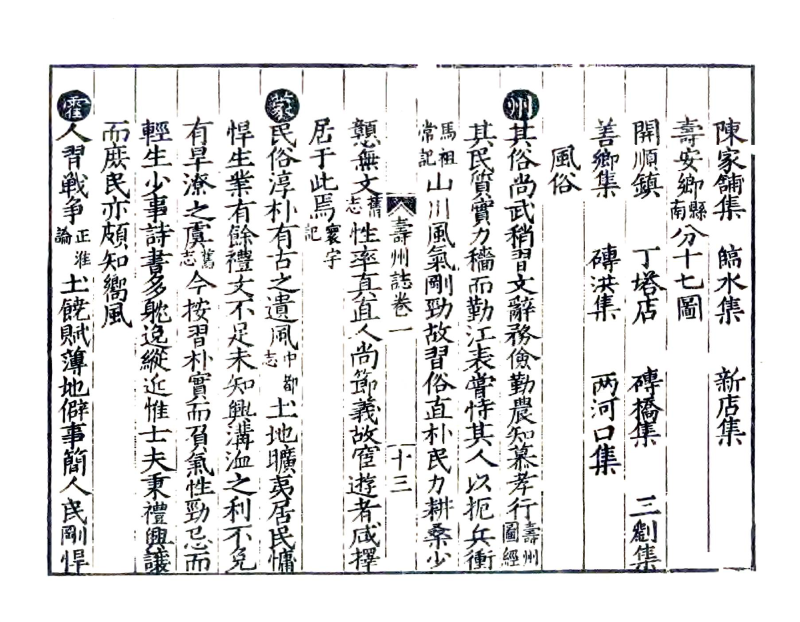 陳家舖集　臨水集　新店集
壽安鄉縣南分十七圖
開順鎮　丁塔店　磚橋集　三劉集
善鄉集　磚洪集　两河口集
風俗
州其俗尚武稍習文辭務儉勤農知慕孝行壽州圖經
其民質實力穡而勤江表嘗恃其人以扼兵衝
馬祖常記山川風氣剛勁故習俗直朴民力耕桑少
壽州誌卷一　十三
戇無文舊志性率直直人尚節義故宦遊者咸擇
居于此焉寰宇記
蒙民俗淳朴有古之遺風中都志土地曠夷居民慵
悍生業有餘禮文不足未知興溝洫之利不免
有旱潦之虞舊志今按習朴實而負氣性勁忌而
輕生少事詩書多躭逸縱近惟士夫秉禮興讓
而庶民亦頗知嚮風
霍人習戰争正淮論土饒賦薄地僻事簡人民剛悍